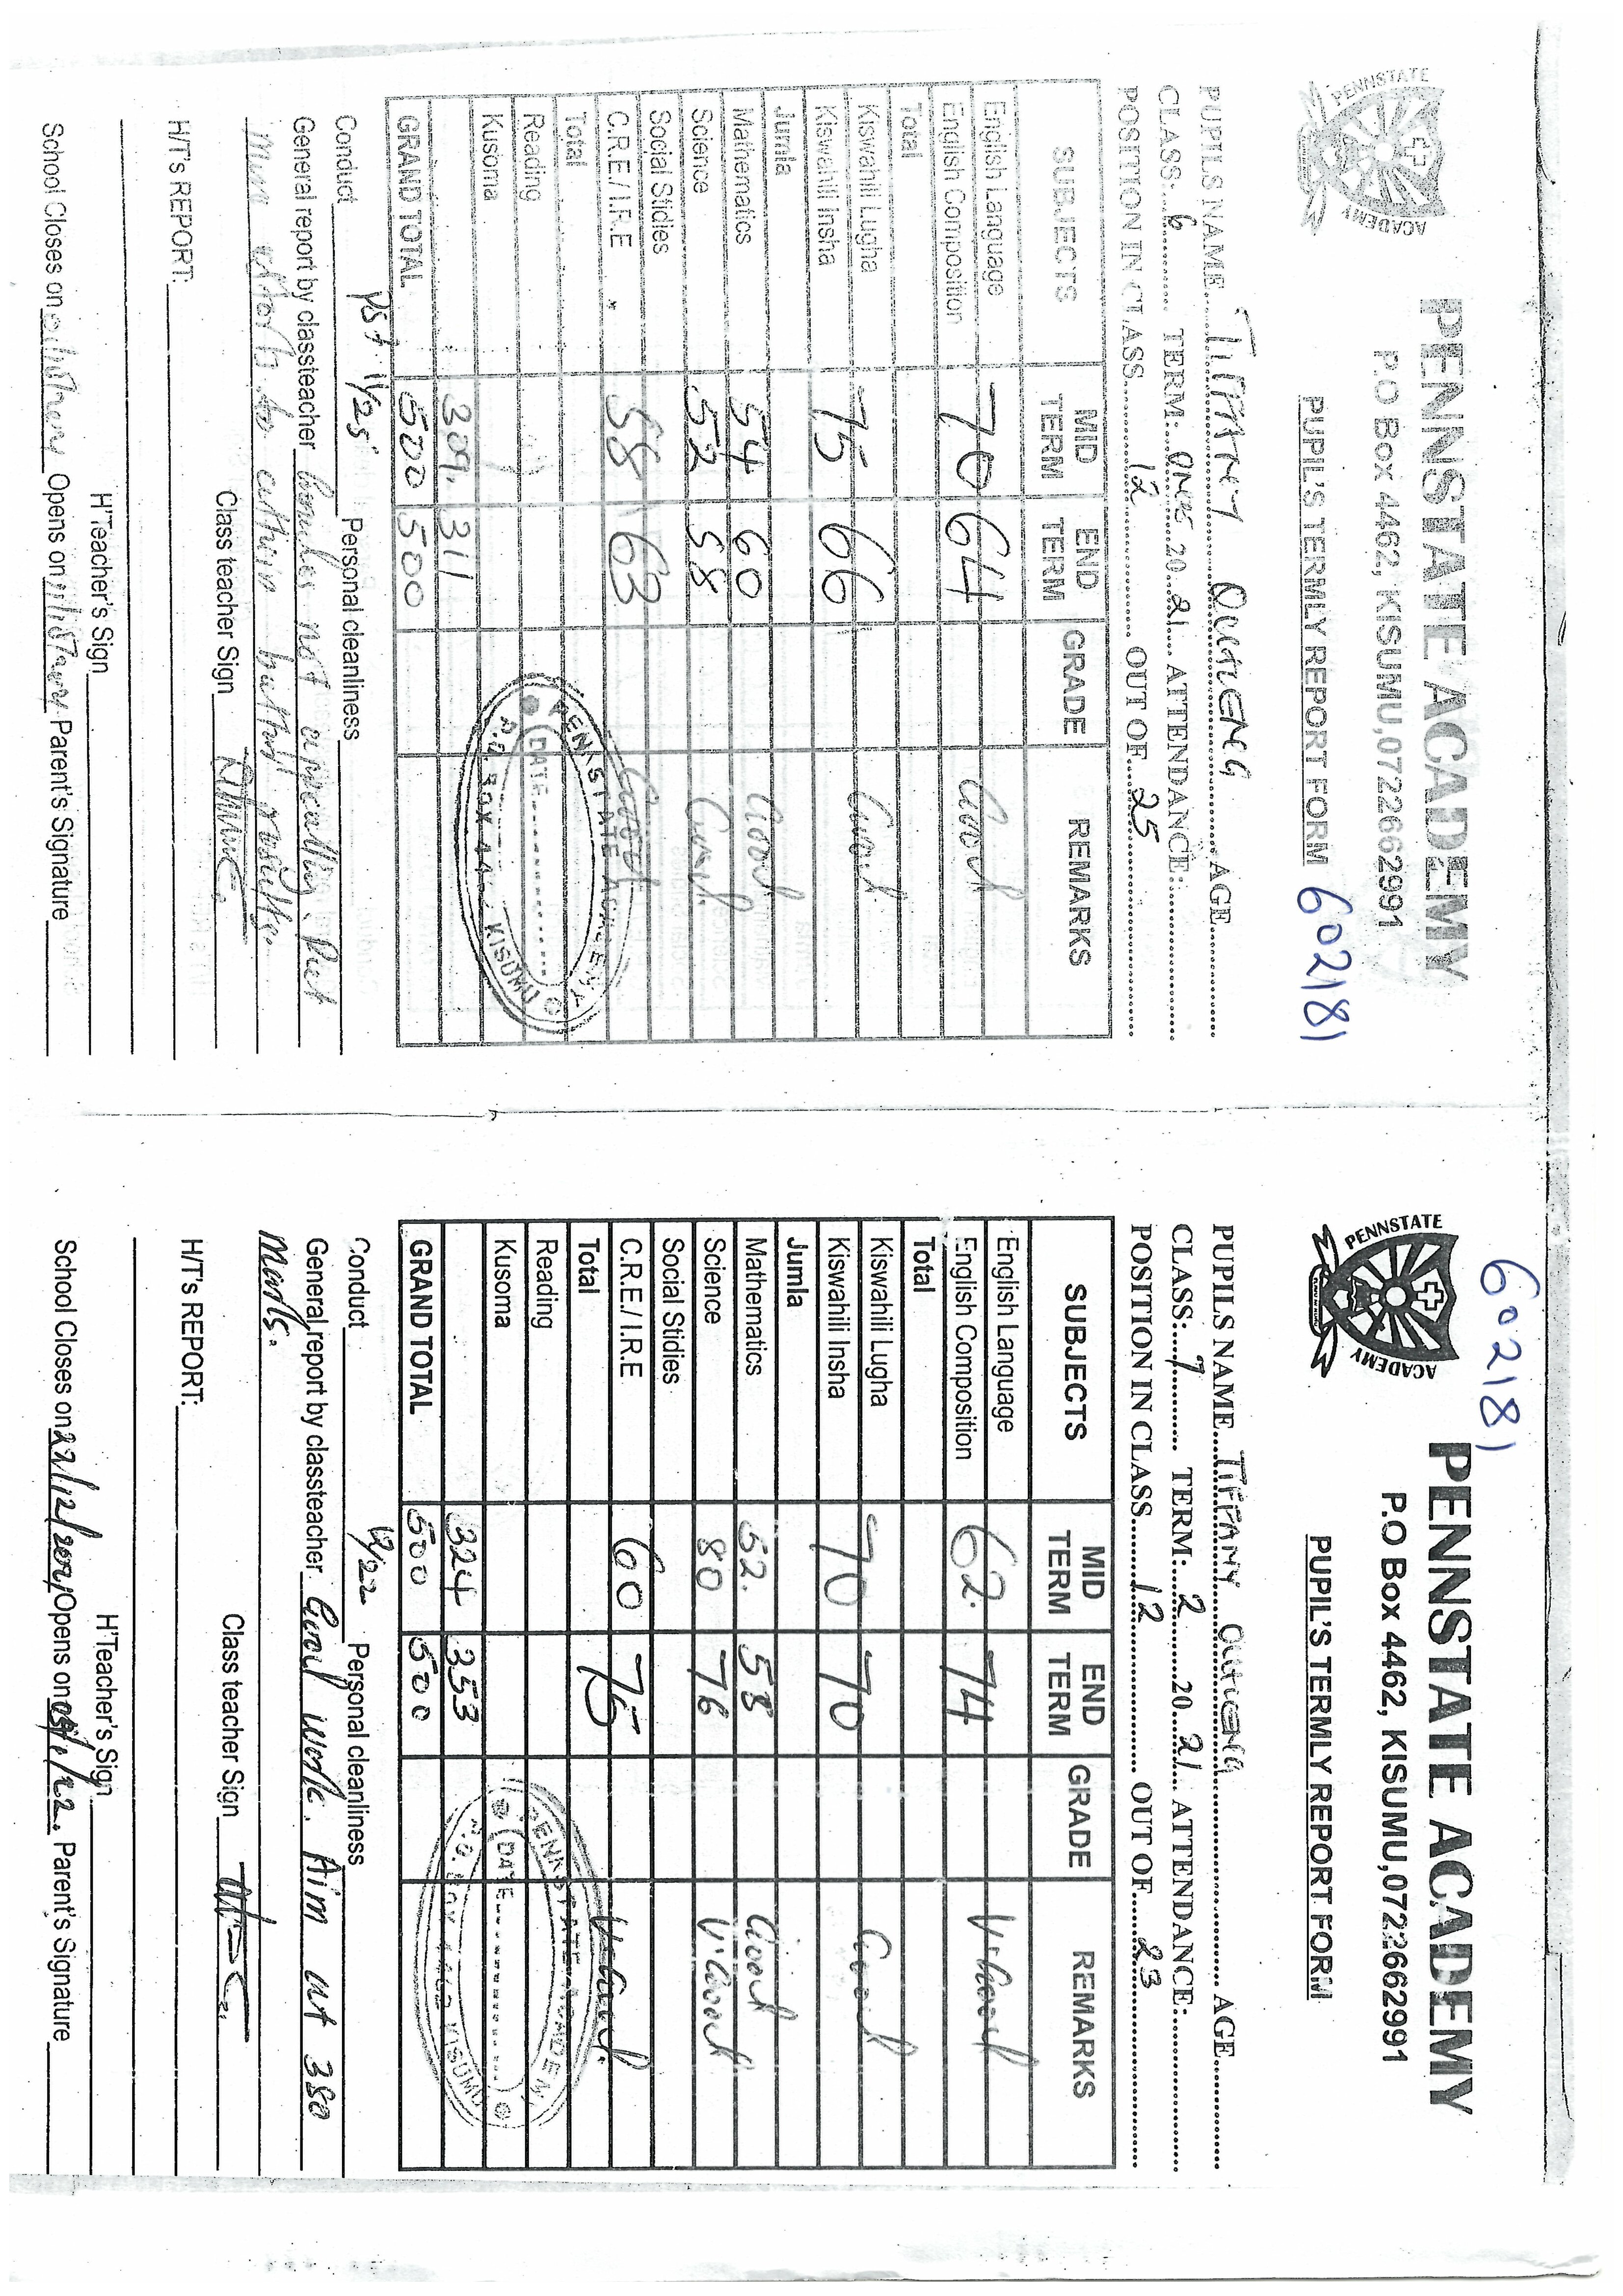 PENNSTATE
ACADEMY
PENNSTATE ACADEMY
P.O Box 4462, KISUMU,0722662991
PUPIL'S TERMLY REPORT FORM 602181
PUPILS NAME TIFFANY AGE
CLASS: 6 TERM: One 20 21 ATTENDANCE:
POSITION IN CLASS 12 OUT OF 25
SUBJECTS MID TERM END TERM GRADE REMARKS
English Language
English Composition 70 64 Good
Total
Kiswahili Lugha Good
Kiswahili Insha 75 66
Jumla
Mathematics 54 60 Good
Science 52 58 Good
Social Stidies
C.R.E./ I.R.E 58 63 Good
Total
Reading
Kusoma
309 311
GRAND TOTAL 500 500
PENNSTATE ACADEMY
DATE
P.O. BOX 4462, KISUMU
Conduct Personal cleanliness
General report by classteacher not Put
more efforts to better results.
Class teacher Sign
H/T's REPORT:
H'Teacher's Sign
School Closes on Opens on Parent's Signature
602181
PENNSTATE
ACADEMY
PENNSTATE ACADEMY
P.O Box 4462, KISUMU,0722662991
PUPIL'S TERMLY REPORT FORM
PUPILS NAME TIFFANY AGE
CLASS: 7 TERM: 2 20 21 ATTENDANCE:
POSITION IN CLASS 12 OUT OF 23
SUBJECTS MID TERM END TERM GRADE REMARKS
English Language
English Composition 62 74 V.Good
Total
Kiswahili Lugha Good
Kiswahili Insha 70 70
Jumla
Mathematics 52 58 Good
Science 80 76 V.Good
Social Stidies
C.R.E./ I.R.E 60 75 V.Good
Total
Reading
Kusoma
324 353
GRAND TOTAL 500 500
PENNSTATE ACADEMY
DATE
P.O. BOX 4462 KISUMU
12/22
Conduct Personal cleanliness
General report by classteacher Good work. Aim at 380
Marks.
Class teacher Sign
H/T's REPORT:
H'Teacher's Sign
School Closes on 22/12/2021 Opens on Parent's Signature